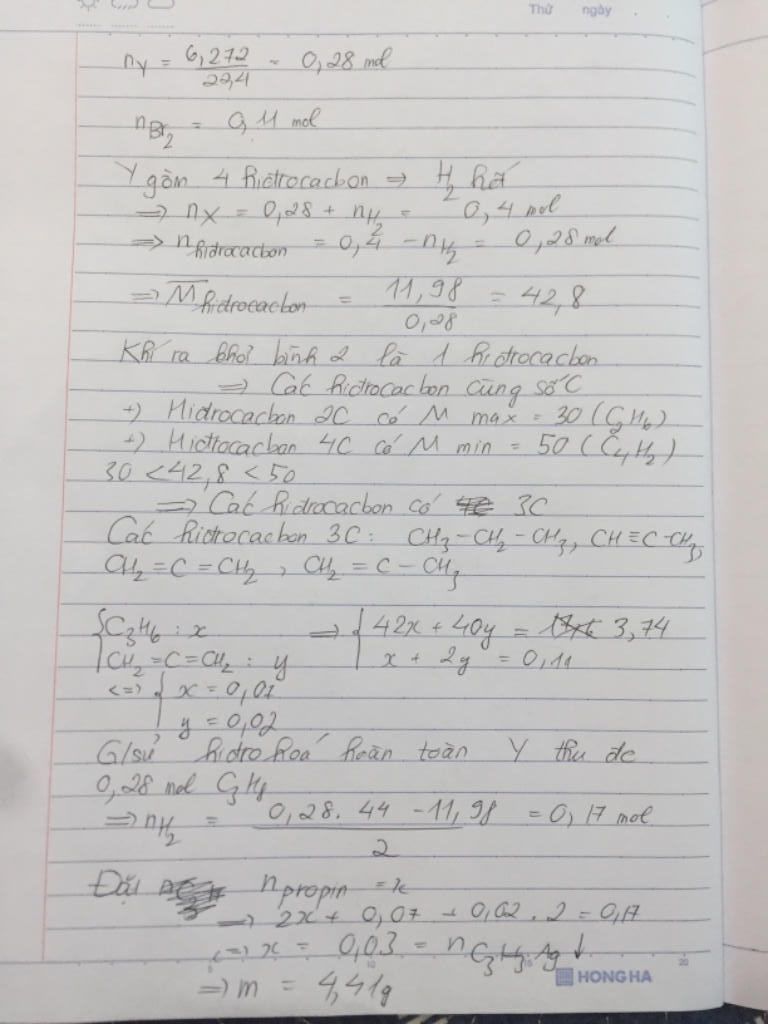 Thứ ngày
n_Y = 6,272/22,4 = 0,28 mol
n_Br₂ = 0,11 mol
Y gồm 4 hiđrocacbon ⇒ H₂ hết
⇒ n_X = 0,28 + n_H₂ = 0,4 mol
⇒ n_hiđrocacbon = 0,4 - n_H₂ = 0,28 mol
⇒ M̅_hiđrocacbon = 11,98/0,28 = 42,8
Khí ra khỏi bình 2 là 1 hiđrocacbon
⇒ Các hiđrocacbon cùng số C
+) Hiđrocacbon 2C có M max = 30 (C₂H₆)
+) Hiđrocacbon 4C có M min = 50 (C₄H₂)
30 < 42,8 < 50
⇒ Các hiđrocacbon có 3C
Các hiđrocacbon 3C: CH₃-CH₂-CH₃, CH≡C-CH₃,
CH₂=C=CH₂, CH₂=C-CH₃
{ C₃H₆ : x ⇒ { 42x + 40y = 3,74
CH₂=C=CH₂ : y x + 2y = 0,11
<=> { x = 0,07
y = 0,02
G/sử hiđro hoá hoàn toàn Y thu đc
0,28 mol C₃H₈
⇒ n_H₂ = (0,28.44 - 11,98)/2 = 0,17 mol
Đặt n_propin = x
⇒ 2x + 0,07 + 0,02.2 = 0,17
<=> x = 0,03 = n_C₃H₃Ag↓
⇒ m = 4,41g
5 10 15 20
HONG HA